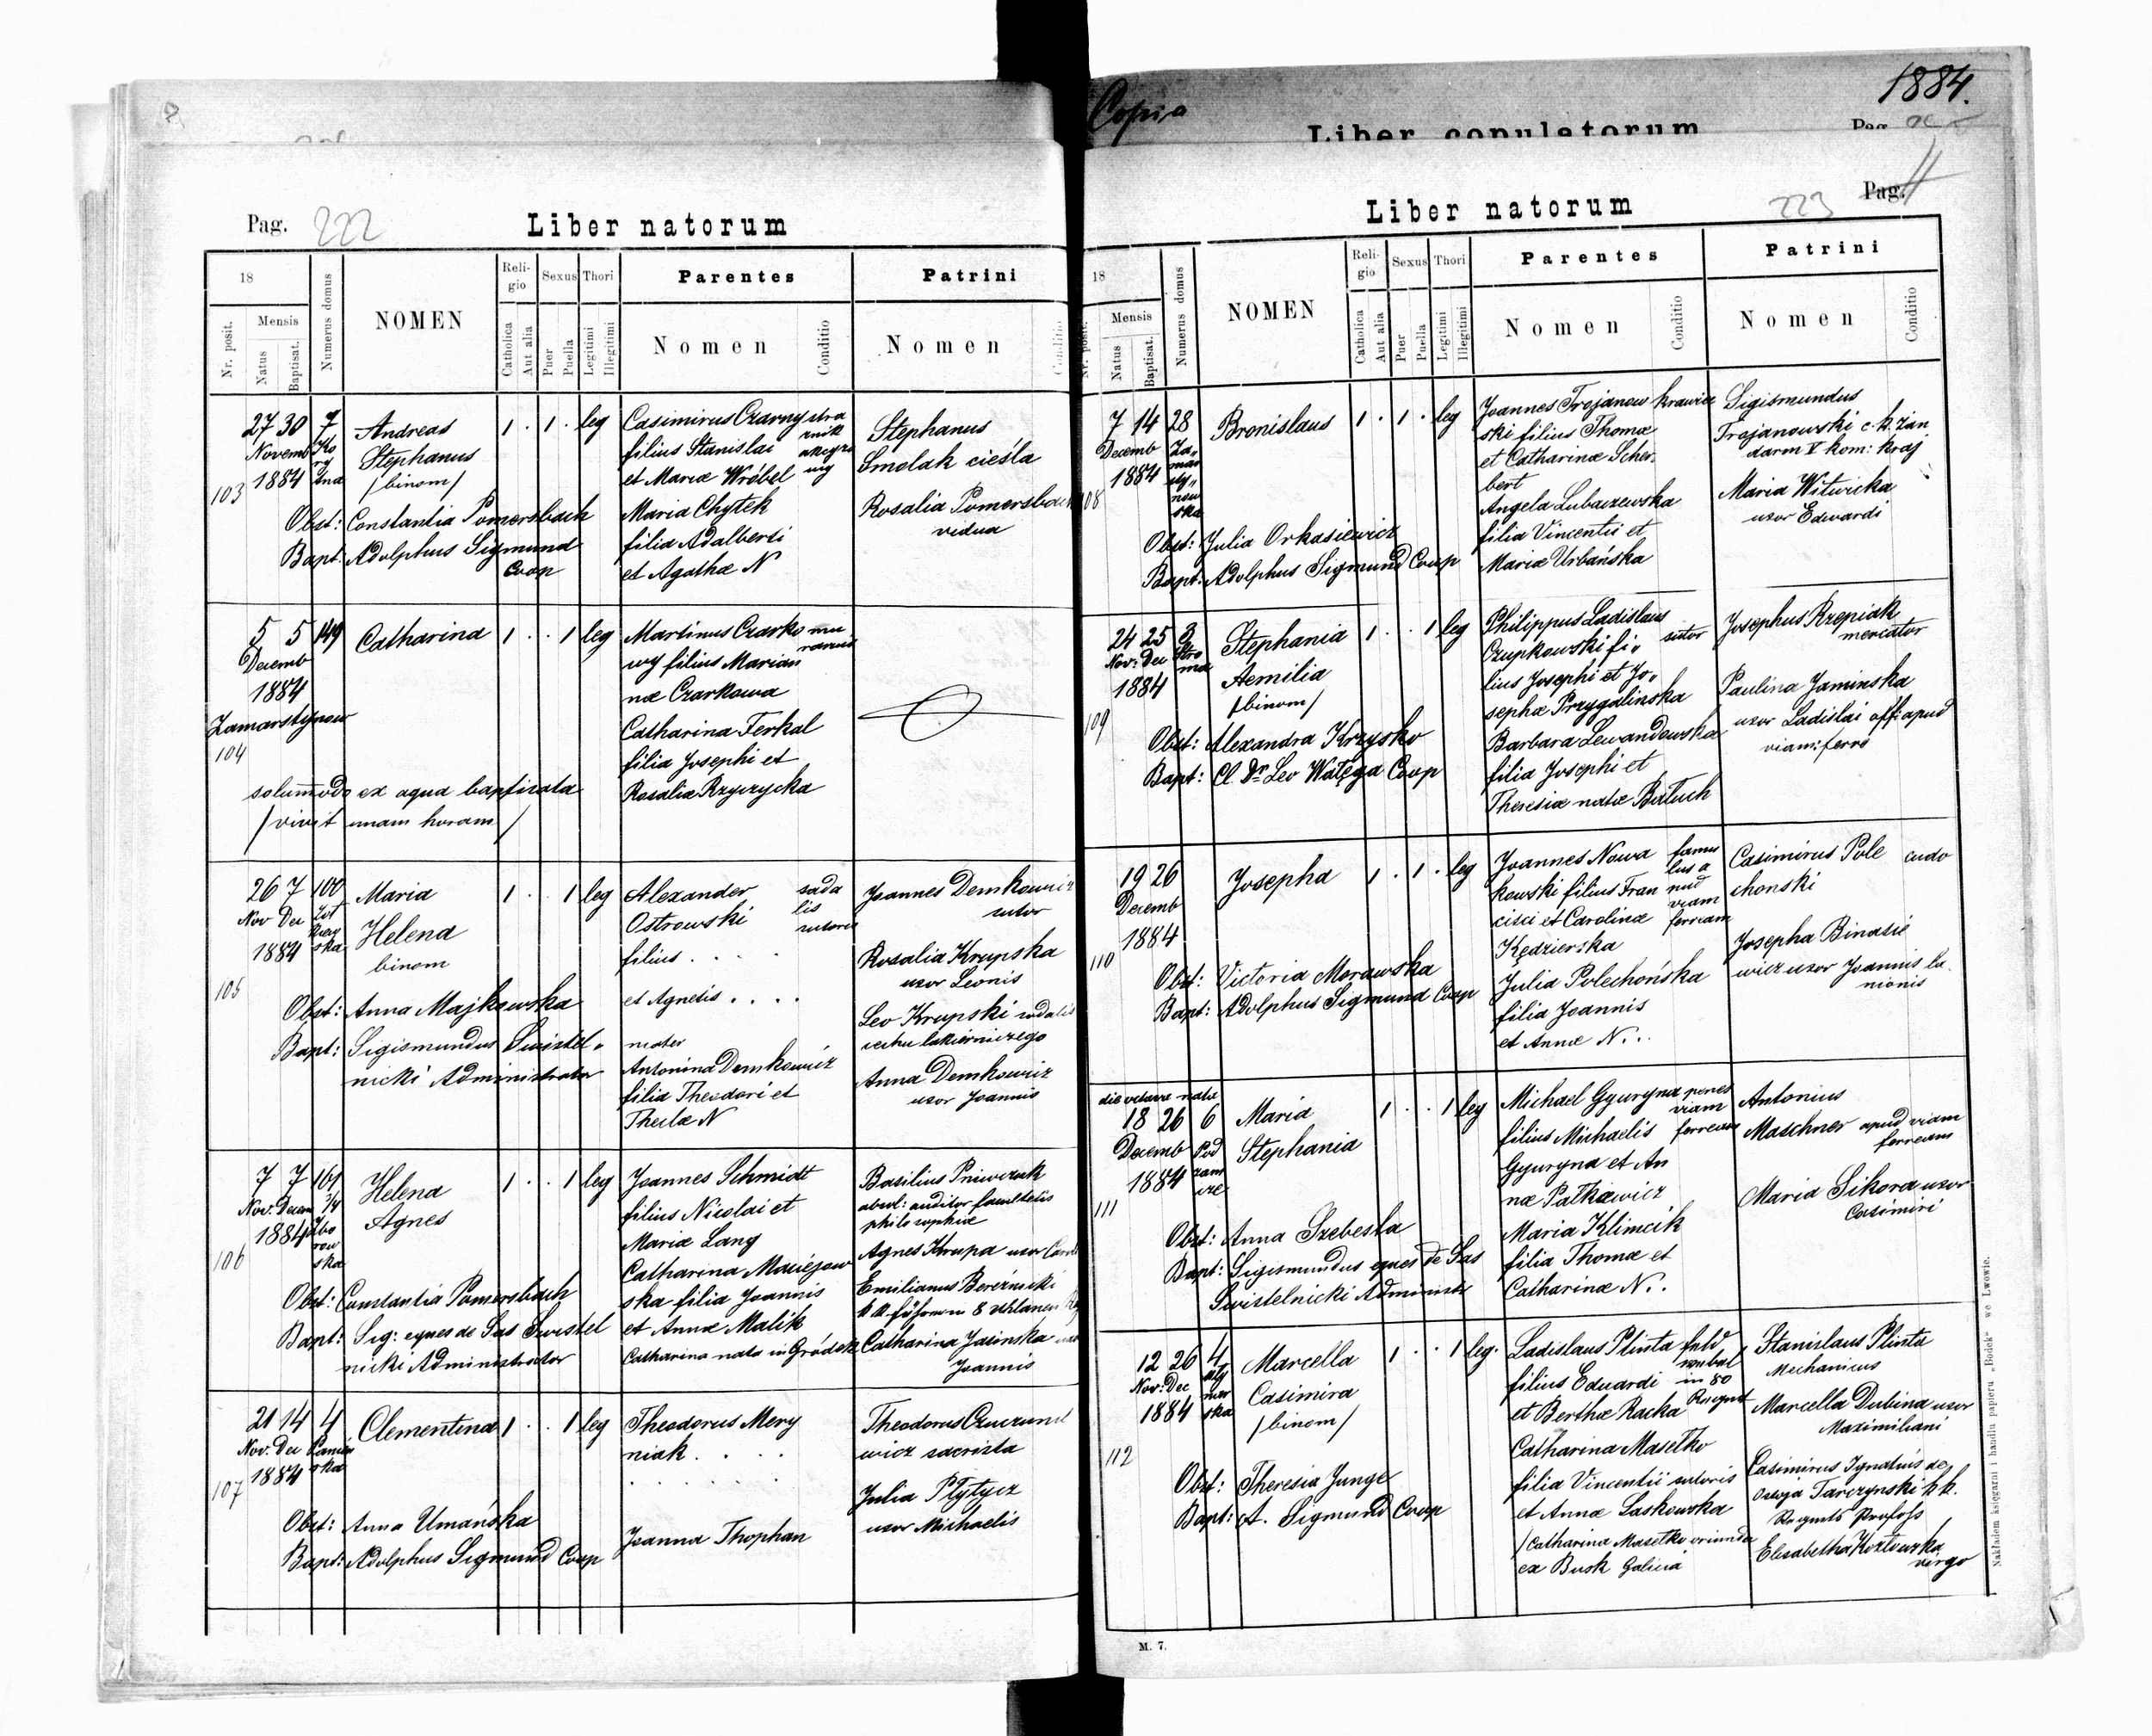 Copia
1884.
Liber copulatorum
Pag.
Pag. 222
Liber natorum
18
Nr. posit.
Mensis
Natus
Baptisat.
Numerus domus
NOMEN
Religio
Catholica
Aut alia
Sexus
Puer
Puella
Thori
Legitimi
Illegitimi
Parentes
Nomen
Conditio
Patrini
Nomen
103
27 30 7
Novemb
1884
Andreas
Stephanus
/binom/
1 . 1 . leg
Casimirus Czarny
filius Stanislai
et Mariæ Wróbel
Maria Chytek
filia Adalberti
et Agathæ N
Stephanus
Smolak cieśla
Rosalia Pomersbach
vidua
Obst: Constantia Pomersbach
Bapt: Adolphus Sigmund
Coop
104
5 5 149
Decemb
1884
Zamarstynow
Catharina
1 . . 1 leg
Martinus Czarko
wy filius Marian
næ Czarkowa
Catharina Ferkal
filia Josephi et
Rosaliæ Rzyczycka
solummodo ex aqua baptisata
/vixit unam horam/
105
26 7 100
Nov Dec
1884
Maria
Helena
binom
1 . . 1 leg
Alexander sada
Ostrowski lis
sutoris
filius . . . .
et Agnetis . . . .
mater
Antonina Demkowicz
filia Theodori et
Theclæ N
Joannes Demkowicz
sutor
Rosalia Krupska
uxor Leonis
Leo Krupski sodalis
cechu lakierniczego
Anna Demkowicz
uxor Joannis
Obst: Anna Majkowska
Bapt: Sigismundus Swistel
nicki Administrator
106
7 7 161
Nov. Decem
1884
Helena
Agnes
1 . . 1 leg
Joannes Schmidt
filius Nicolai et
Mariæ Lang
Catharina Maciejow
ska filia Joannis
et Annæ Malik
Catharina nata in Gródek
Basilius Pniwczuk
absol: auditor facultatis
philosophiæ
Agnes Krupa uxor
Emilianus Bereźnicki
Catharina Jasinska
Joannis
Obst: Constantia Pomersbach
Bapt: Sig: eques de Sas Swistel
nicki Administrator
107
21 14 4
Nov. Dec
1884
Clementina
1 . . 1 leg
Theodorus Mery
niak . . . .
Joanna Thophan
Theodorus
wicz sacrista
Julia Płytycz
uxor Michaelis
Obst: Anna Umańska
Bapt: Adolphus Sigmund Coop
Liber natorum
223
Pag.
18
Nr. posit.
Mensis
Natus
Baptisat.
Numerus domus
NOMEN
Religio
Catholica
Aut alia
Sexus
Puer
Puella
Thori
Legitimi
Illegitimi
Parentes
Nomen
Conditio
Patrini
Nomen
Conditio
108
7 14 28
Decemb
1884
Za„
mar
sty„
now
ska
Bronislaus
1 . 1 . leg
Joannes Trojanow krawiec
ski filius Thomæ
et Catharinæ Scher.
bert
Angela Lubaczewska
filia Vincentii et
Mariæ Urbańska
Sigismundus
Trojanowski c. k. żan
darm V kom: kraj
Maria Witwicka
uxor Edwardi
Obst: Julia Orkasiewicz
Bapt: Adolphus Sigmund Coop
109
24 25 3
Nov: Dec
1884
Stephania
Aemilia
/binom/
1 . . 1 leg
Philippus Ladislaus
Czupkowski fi„ sutor
lius Josephi et Jo„
sephæ Przygalinska
Barbara Lewandowska
filia Josephi et
Theresiæ natæ Bałuch
Josephus Rzepiak
mercator
Paulina Jaminska
uxor Ladislai off: apud
viam: ferre
Obst: Alexandra Krzysko
Bapt: Cl. Dr Leo Wałęga Coop
110
19 26
Decemb
1884
Josepha
1 . 1 . leg
Joannes Nowa famu
kowski filius Fran lus a
cisci et Carolinæ
viam
ferream
Kędzierska
Julia Polechońska
filia Joannis
et Annæ N. .
Casimirus Pole cudo
chonski
Josepha Binasie
wicz uxor Joannis la.
nionis
Obst: Victoria Morawska
Bapt: Adolphus Sigmund Coop
111
18 26 6
Decemb
1884
Pod
zam
cze
Maria
Stephania
1 . . 1 leg
Michael Gyuryna penes
filius Michaelis viam
ferream
Gyuryna et An
næ Pałkiewicz
Maria Klimcik
filia Thomæ et
Catharinæ N. .
Antonius
Maschner apud viam
ferream
Maria Sikora uxor
Casimiri
Obst: Anna Szebesta
Bapt: Sigismundus eques de Sas
Swistelnicki Administr
112
12 26 4
Nov: Dec
1884
Marcella
Casimira
/binom/
1 . . 1 leg.
Ladislaus Plinta feld
filius Eduardi webel
in 80
et Berthæ Racka Regmt
Catharina Masełko
filia Vincentii sutoris
et Annæ Laskowska
/Catharina Masełko oriunda
ex Busk Galicia
Stanislaus Plinta
Mechanicus
Marcella Dubina uxor
Maximiliani
Casimirus Ignatius de
Ostoja Tarczynski k k.
Regmts Profoss
Elisabetha Kozłowska
virgo
Obst: Theresia Junge
Bapt: A. Sigmund Coop
M. 7.
Nakładem księgarni i handlu papieru „Bodek“ we Lwowie.